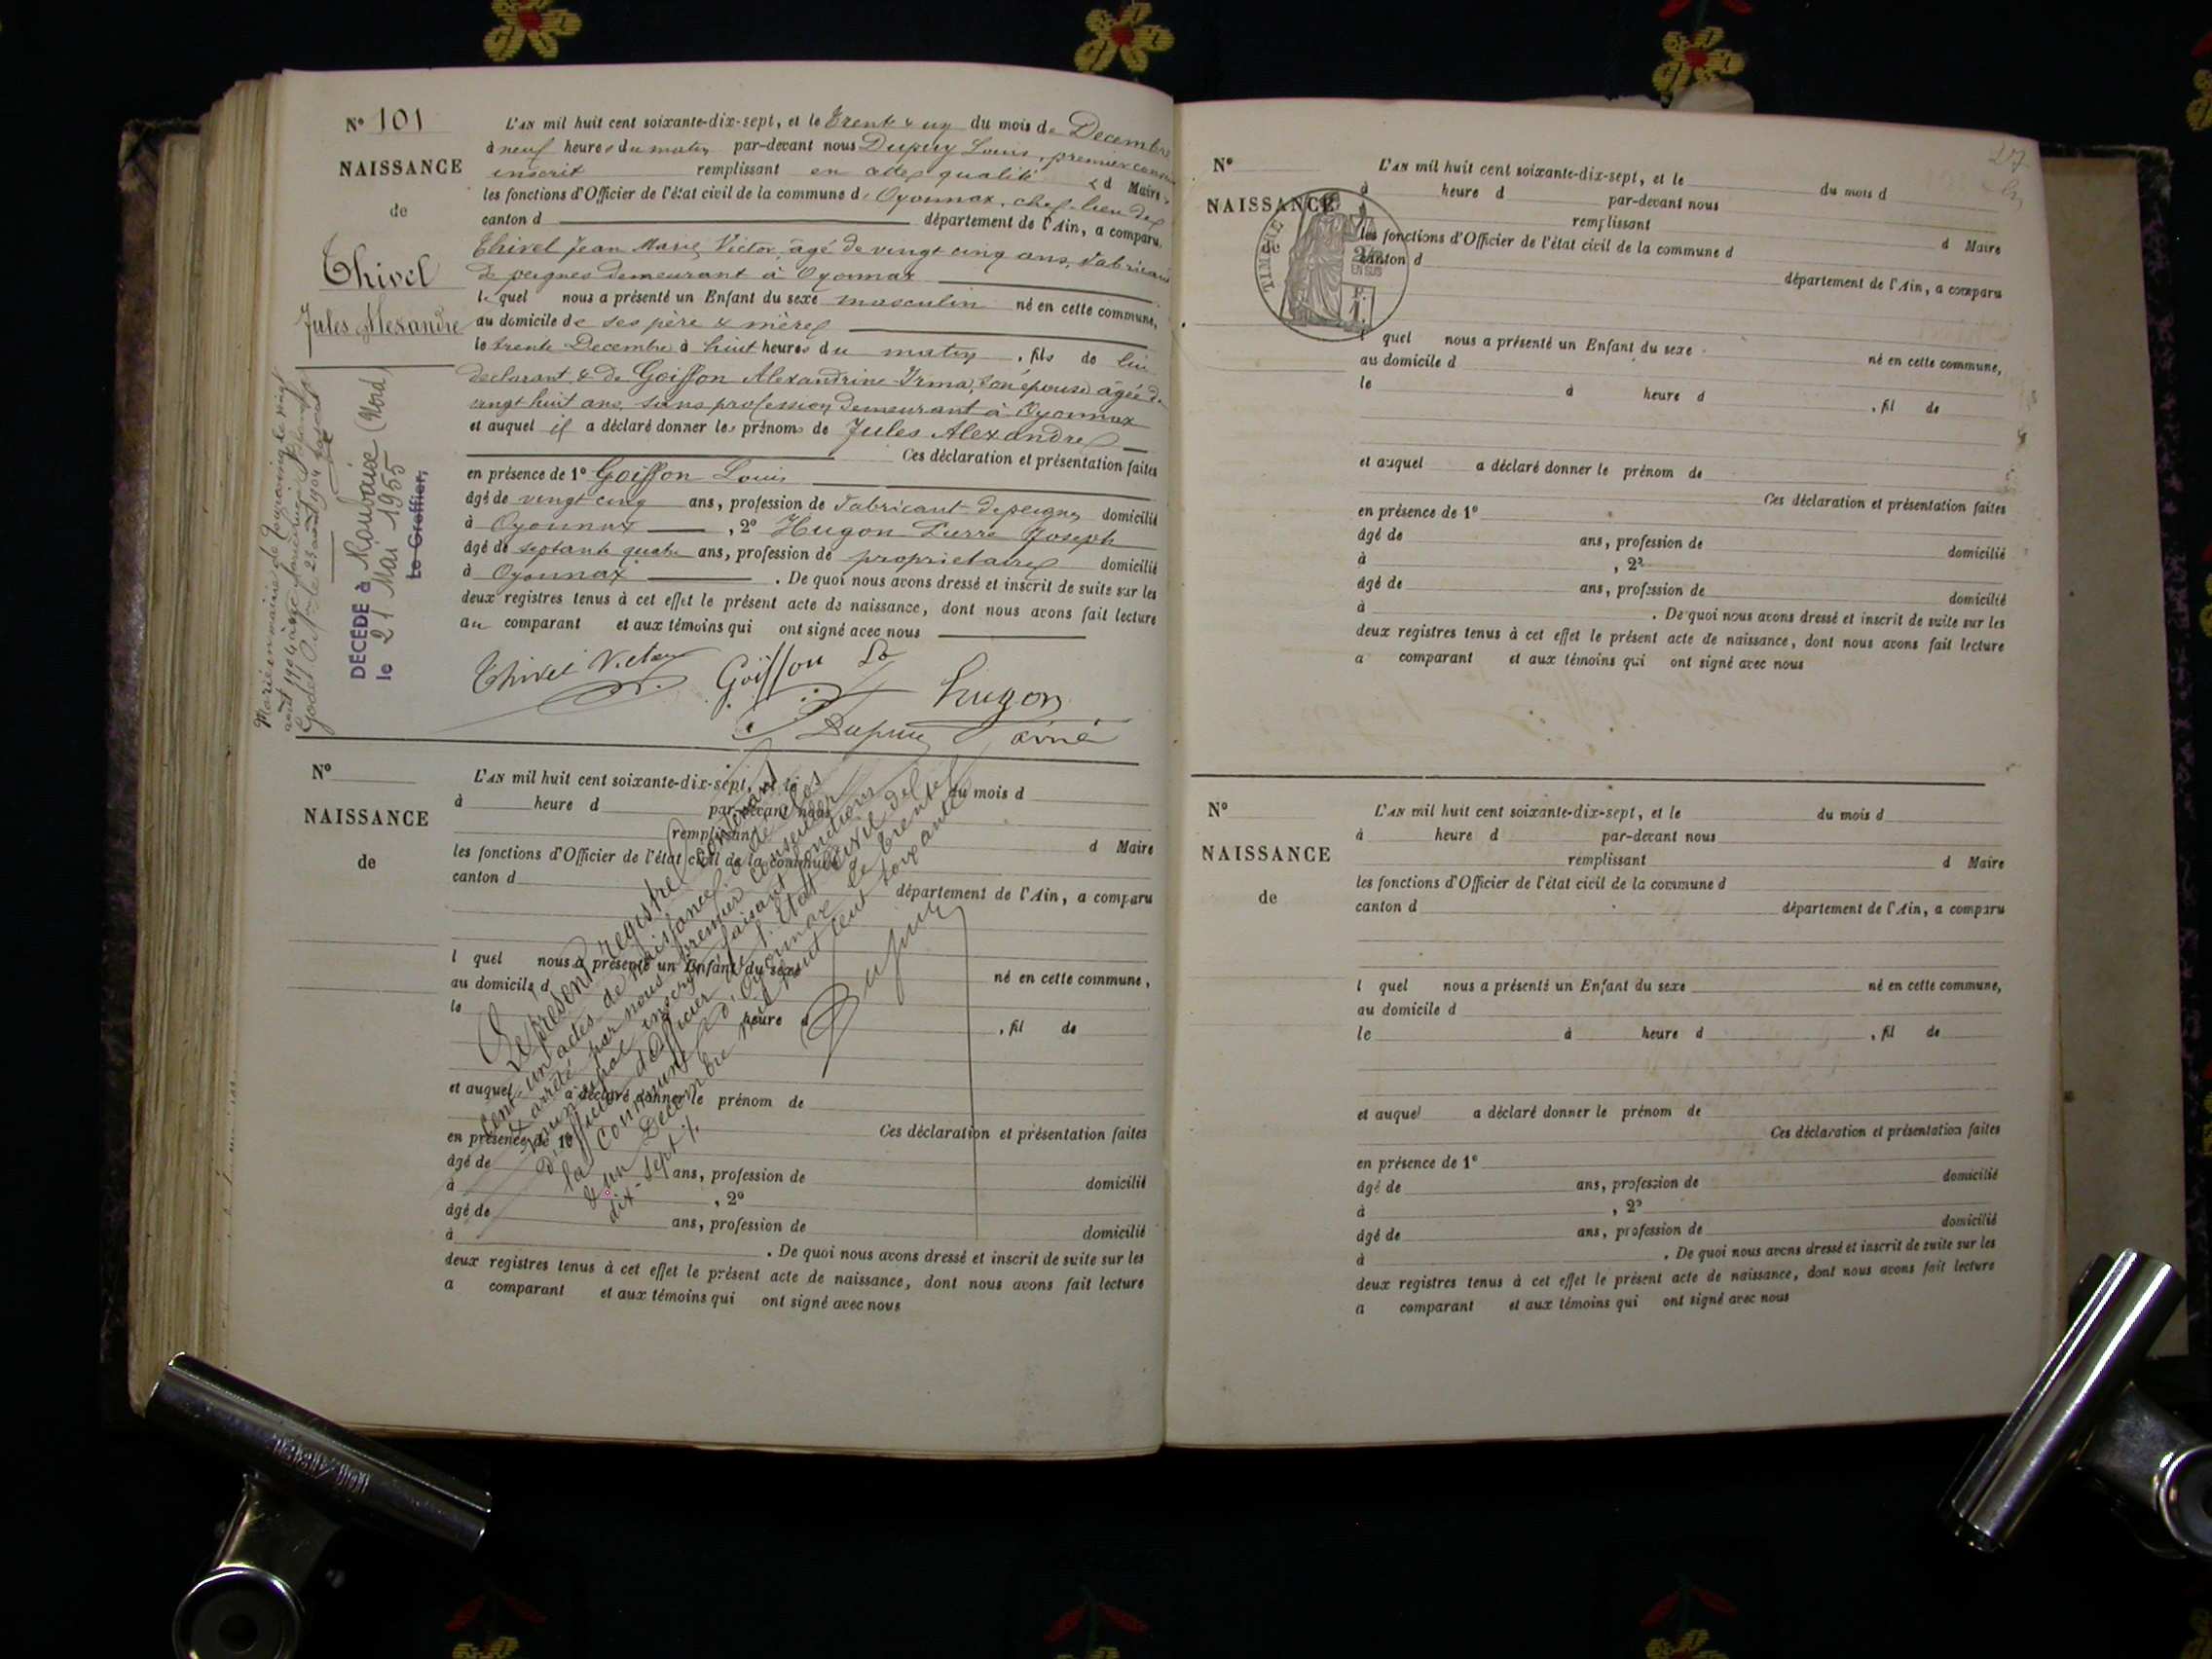 N° 101
NAISSANCE
de
Thivel
Jules Alexandre
L'AN mil huit cent soixante-dix-sept, et le trente & un du mois de Decembre
à neuf heures du matin par-devant nous Dupuy Louis, premier
inscrit remplissant en cette qualité d Maire
les fonctions d'Officier de l'état civil de la commune d'Oyonnax, chef-lieu de
canton d département de l'Ain, a comparu
Thivel Jean Marie Victor, âgé de vingt cinq ans, fabricant
de peignes demeurant à Oyonnax
lequel nous a présenté un Enfant du sexe masculin né en cette commune,
au domicile de ses père & mère
le trente Decembre à huit heures du matin, fils de lui
declarant & de Goiffon Alexandrine Irma, son épouse âgée de
vingt huit ans, sans profession demeurant à Oyonnax
et auquel il a déclaré donner les prénoms de Jules Alexandre
Ces déclaration et présentation faites
en présence de 1° Goiffon Louis
âgé de vingt cinq ans, profession de fabricant de peignes domicilié
à Oyonnax, 2° Hugon Pierre Joseph
âgé de septante quatre ans, profession de proprietaire domicilié
à Oyonnax. De quoi nous avons dressé et inscrit de suite sur les
deux registres tenus à cet effet le présent acte de naissance, dont nous avons fait lecture
au comparant et aux témoins qui ont signé avec nous
Thivel Victor Goiffon Ls
hugon
Dupuy aîné
Marié en mairie de Tourcoing le vingt
août 1904 à
Godet
DÉCÉDÉ à Roubaix (Nord)
le 21 Mai 1955
Le Greffier,
N°
NAISSANCE
de
L'AN mil huit cent soixante-dix-sept, et le du mois d
à heure d par-devant nous
remplissant d Maire
les fonctions d'Officier de l'état civil de la commune d
canton d département de l'Ain, a comparu
l quel nous a présenté un Enfant du sexe né en cette commune,
au domicile d
le à heure d , fil de
et auquel a déclaré donner le prénom de
Ces déclaration et présentation faites
en présence de 1°
âgé de ans, profession de domicilié
à , 2°
âgé de ans, profession de domicilié
à . De quoi nous avons dressé et inscrit de suite sur les
deux registres tenus à cet effet le présent acte de naissance, dont nous avons fait lecture
a comparant et aux témoins qui ont signé avec nous
Le présent registre contenant
cent-un actes de naissance, a été clos
& arrêté par nous premier conseiller
municipal inscrit faisant fonctions
d'officier de l'état civil de
la Commune d'Oyonnax le trente
& un Decembre mil huit cent soixante
dix-sept %
Dupuy
N°
NAISSANCE
de
TIMBRE
2/10
EN SUS
F.
1.
L'AN mil huit cent soixante-dix-sept, et le du mois d
à heure d par-devant nous
remplissant d Maire
les fonctions d'Officier de l'état civil de la commune d
canton d département de l'Ain, a comparu
l quel nous a présenté un Enfant du sexe né en cette commune,
au domicile d
le à heure d , fil de
et auquel a déclaré donner le prénom de
Ces déclaration et présentation faites
en présence de 1°
âgé de ans, profession de domicilié
à , 2°
âgé de ans, profession de domicilié
à . De quoi nous avons dressé et inscrit de suite sur les
deux registres tenus à cet effet le présent acte de naissance, dont nous avons fait lecture
a comparant et aux témoins qui ont signé avec nous
N°
NAISSANCE
de
L'AN mil huit cent soixante-dix-sept, et le du mois d
à heure d par-devant nous
remplissant d Maire
les fonctions d'Officier de l'état civil de la commune d
canton d département de l'Ain, a comparu
l quel nous a présenté un Enfant du sexe né en cette commune,
au domicile d
le à heure d , fil de
et auquel a déclaré donner le prénom de
Ces déclaration et présentation faites
en présence de 1°
âgé de ans, profession de domicilié
à , 2°
âgé de ans, profession de domicilié
à . De quoi nous avons dressé et inscrit de suite sur les
deux registres tenus à cet effet le présent acte de naissance, dont nous avons fait lecture
a comparant et aux témoins qui ont signé avec nous